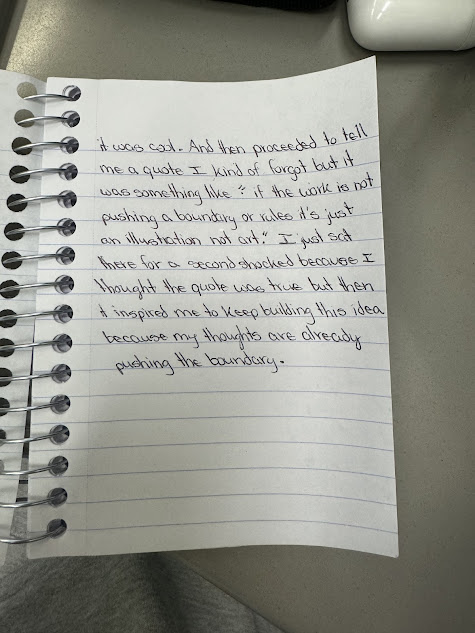 it was cool. And then proceeded to tell
me a quote I kind of forgot but it
was something like " if the work is not
pushing a boundary or rules it's just
an illustration not art." I just sat
there for a second shocked because I
thought the quote was true but then
it inspired me to keep building this idea
because my thoughts are already
pushing the boundary.